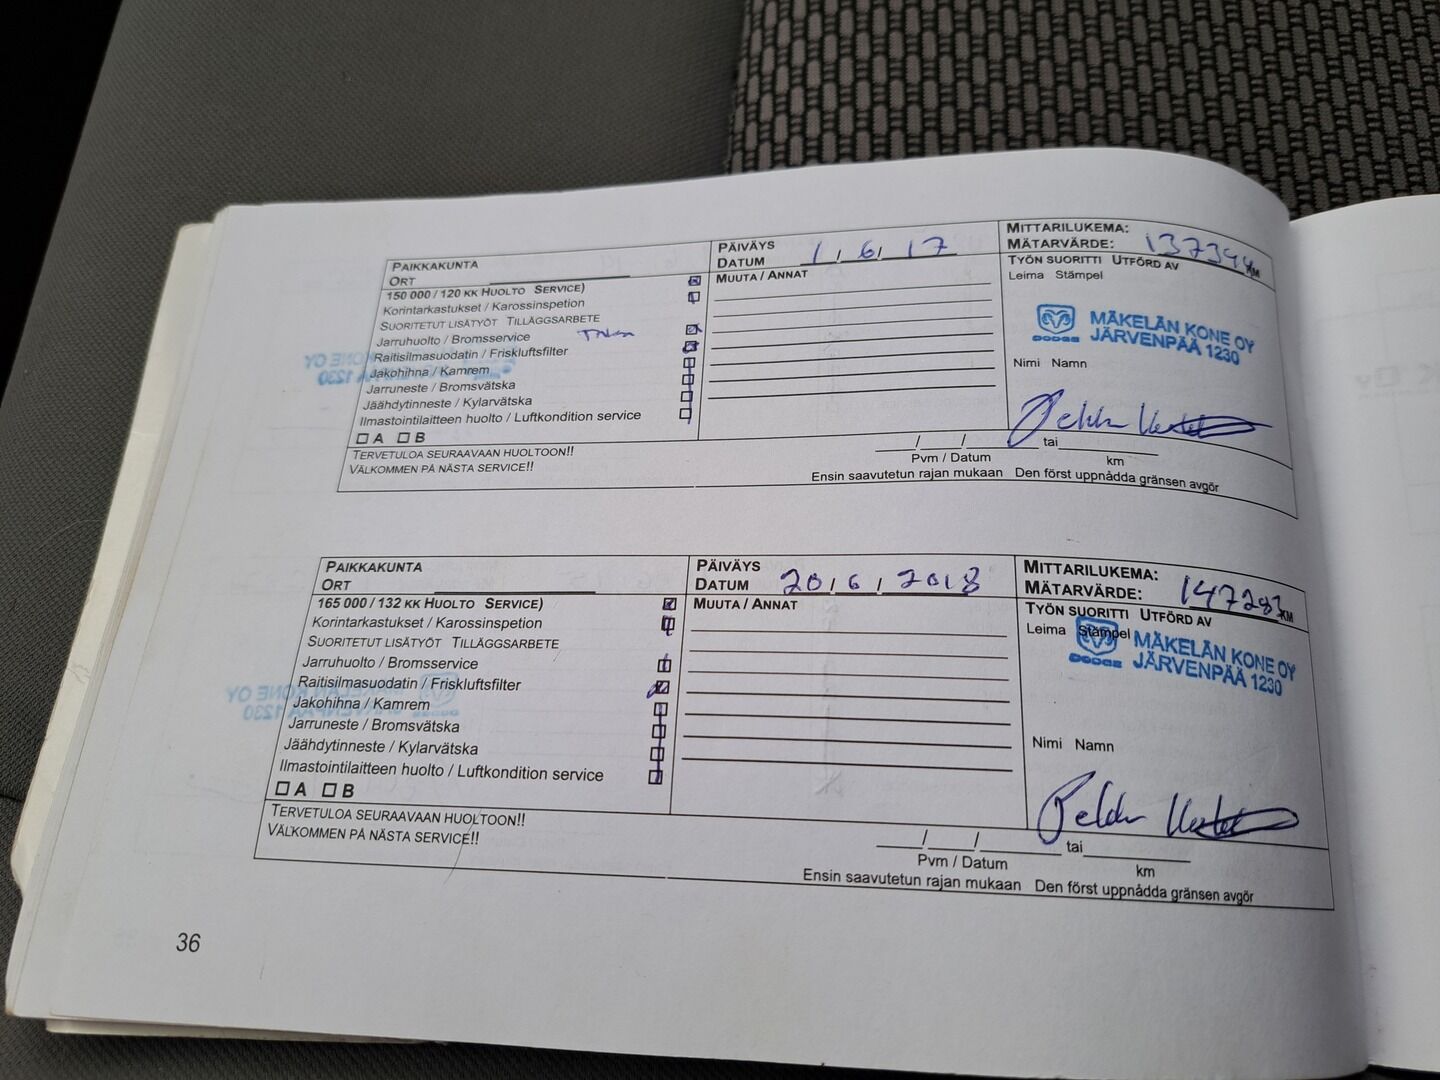 PAIKKAKUNTA
ORT
PÄIVÄYS
DATUM 1/6/17
MITTARILUKEMA:
MÄTARVÄRDE: 137394 KM
150 000 / 120 KK HUOLTO SERVICE)
Korintarkastukset / Karossinspetion
SUORITETUT LISÄTYÖT TILLÄGGSARBETE
Jarruhuolto / Bromsservice
Raitisilmasuodatin / Friskluftsfilter
Jakohihna / Kamrem
Jarruneste / Bromsvätska
Jäähdytinneste / Kylarvätska
Ilmastointilaitteen huolto / Luftkondition service
A B
MUUTA / ANNAT
TYÖN SUORITTI UTFÖRD AV
Leima Stämpel
DODGE
MÄKELÄN KONE OY
JÄRVENPÄÄ 1230
Nimi Namn
TERVETULOA SEURAAVAAN HUOLTOON!!
VÄLKOMMEN PÅ NÄSTA SERVICE!!
/ / tai
Pvm / Datum km
Ensin saavutetun rajan mukaan Den först uppnådda gränsen avgör
PAIKKAKUNTA
ORT
PÄIVÄYS
DATUM 20/6/2018
MITTARILUKEMA:
MÄTARVÄRDE: 147283 KM
165 000 / 132 KK HUOLTO SERVICE)
Korintarkastukset / Karossinspetion
SUORITETUT LISÄTYÖT TILLÄGGSARBETE
Jarruhuolto / Bromsservice
Raitisilmasuodatin / Friskluftsfilter
Jakohihna / Kamrem
Jarruneste / Bromsvätska
Jäähdytinneste / Kylarvätska
Ilmastointilaitteen huolto / Luftkondition service
A B
MUUTA / ANNAT
TYÖN SUORITTI UTFÖRD AV
Leima Stämpel
DODGE
MÄKELÄN KONE OY
JÄRVENPÄÄ 1230
Nimi Namn
TERVETULOA SEURAAVAAN HUOLTOON!!
VÄLKOMMEN PÅ NÄSTA SERVICE!!
/ / tai
Pvm / Datum km
Ensin saavutetun rajan mukaan Den först uppnådda gränsen avgör
36